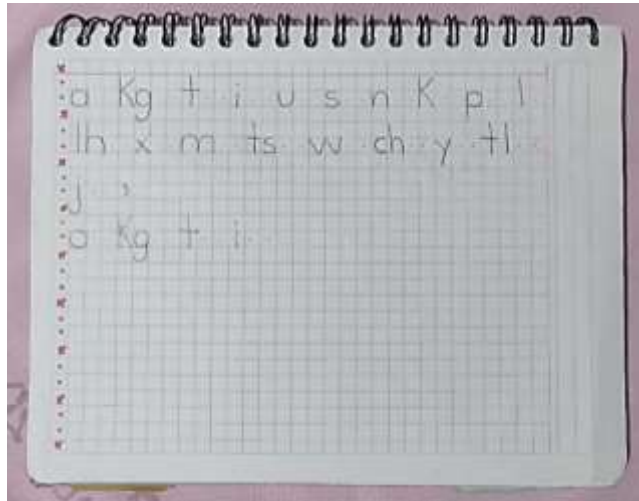 a Kg t i u s n K p l
lh x m ts w ch y tl
j '
a Kg t i